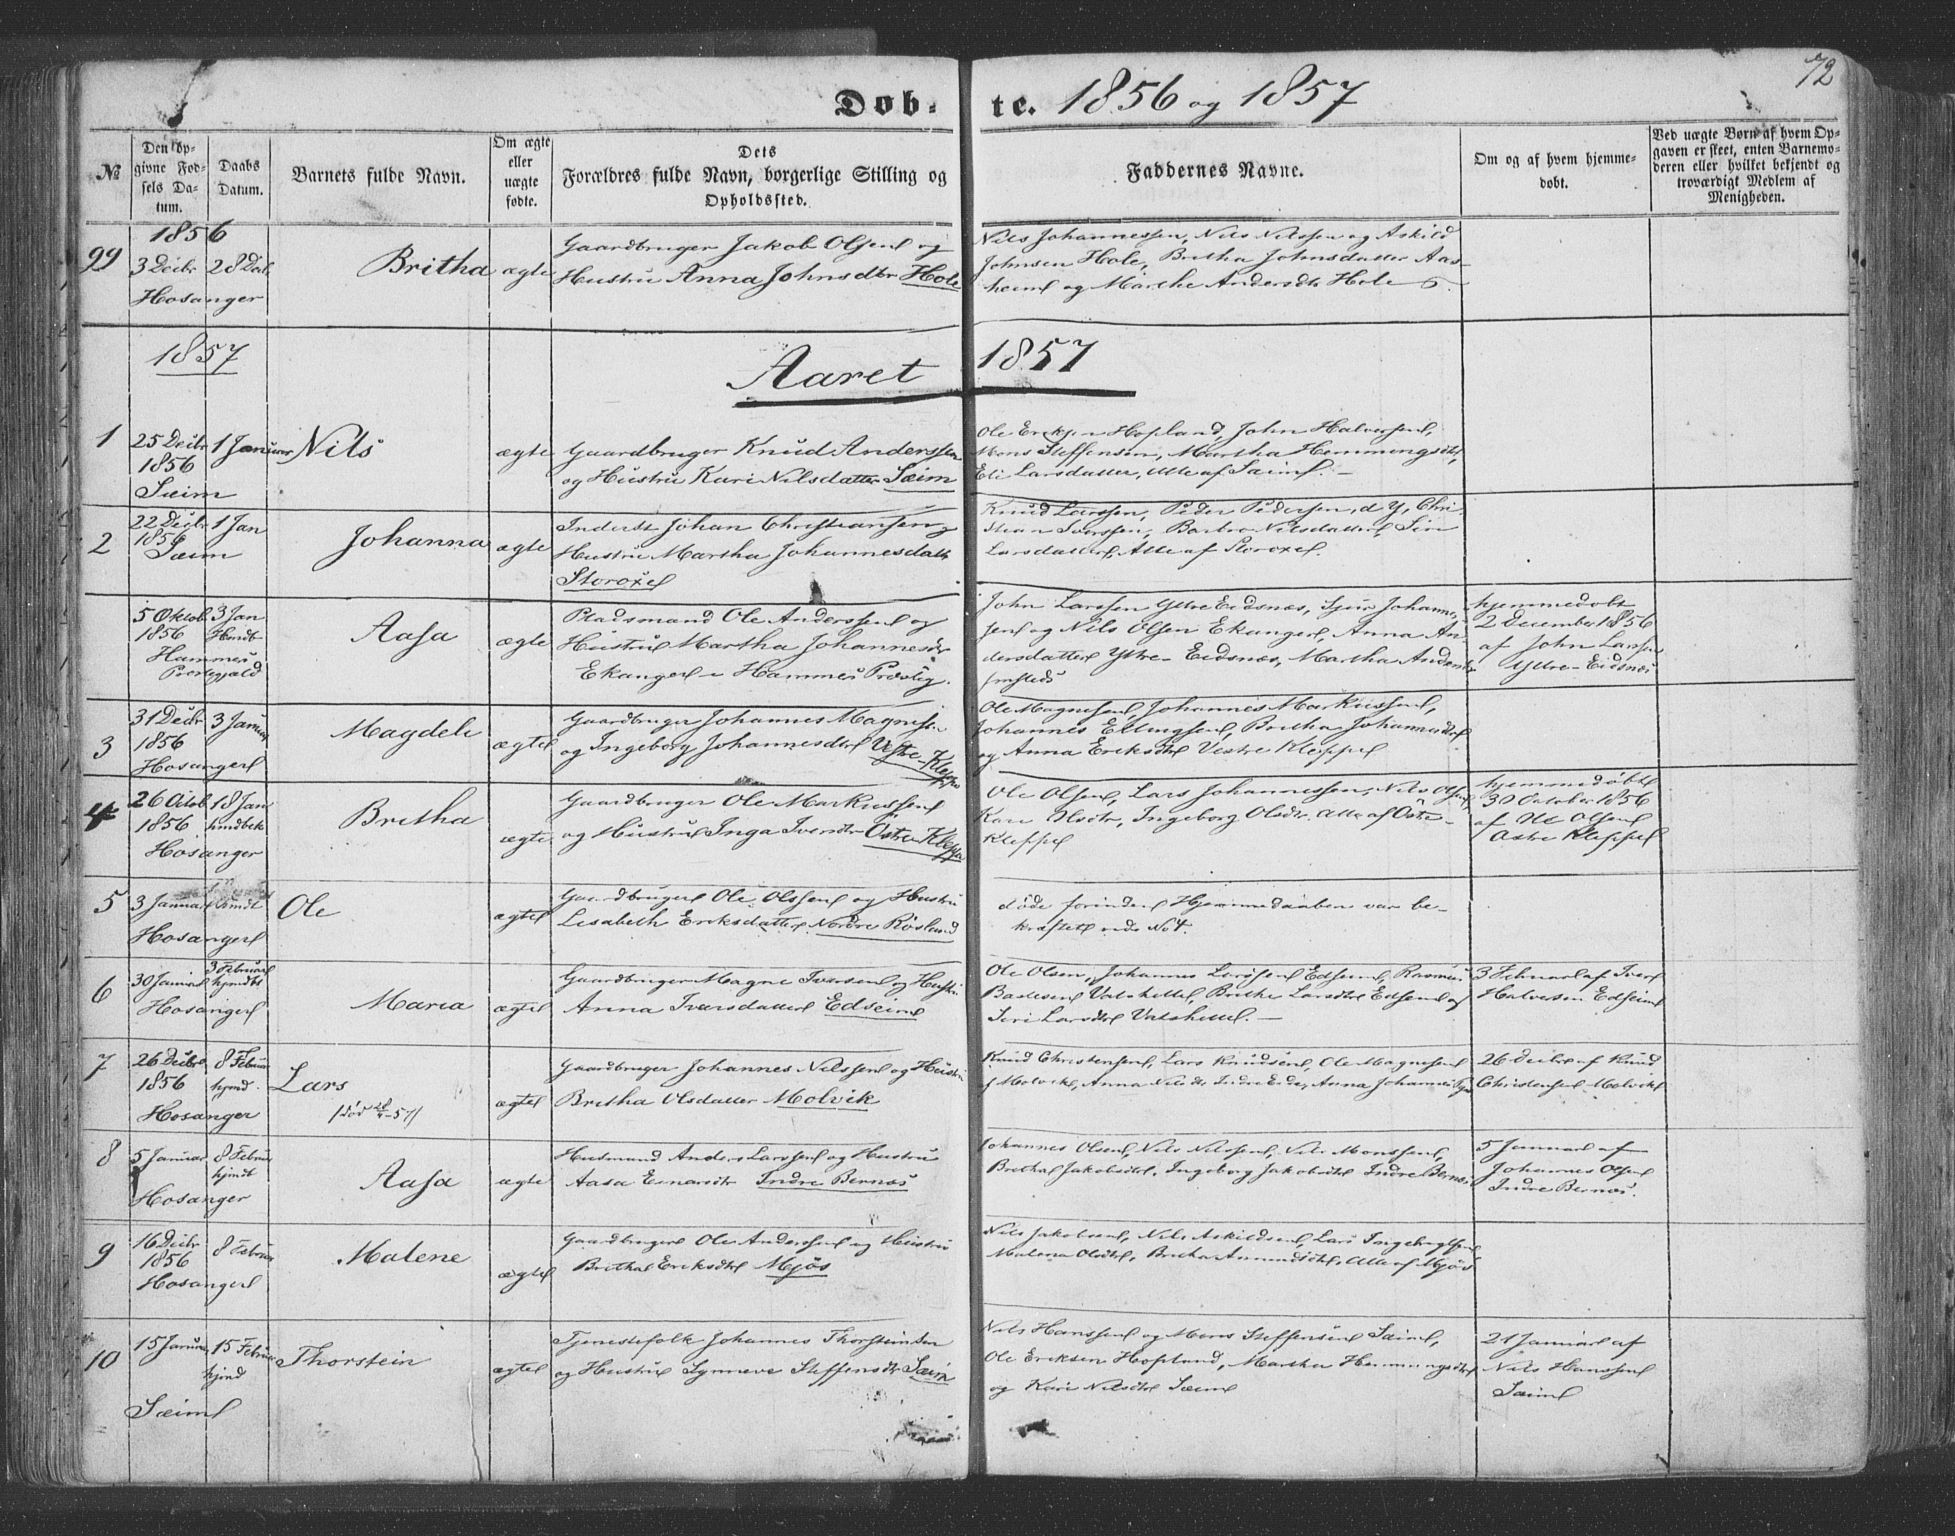 72
Døb- te. 1856 og 1857
№
Den op-
givne Fød-
sels Da-
tum.
Daabs
Datum.
Barnets fulde Navn.
Om ægte
eller
uægte
fødte.
Dets
Forældres fulde Navn, borgerlige Stilling og
Opholdssted.
Faddernes Navne.
Om og af hvem hjemme-
døbt.
Ved uægte Børn af hvem Op-
gaven er skeet, enten Barnemo-
deren eller hvilket bekjendt og
troværdigt Medlem af
Menigheden.
1856
99
3 Decbr
Hosanger
28 Decb
Britha
ægte
Gaardbruger Jakob Olsen og
Hustru Anna Johnsdtr Hole
Nils Johannessen, Nils Nilssen og Askild
Johnsen Hole, Britha Johnsdatter Aas-
heim og Marthe Andersdtr Hole
1857
Aaret 1857
1
25 Decbr
1856
Sæim
1 Januar
Nils
ægte
Gaardbruger Knud Anderssen
og Hustru Kari Nilsdatter Sæim
Ole Eriksen Hopland, John Halversen,
Mons Steffensen, Martha Hemmingsdtr,
Eli Larsdatter, Alle af Sæim. -
2
22 Decbr
1856
Sæim
1 Jan
Johanna
ægte
Inderst Johan Christiansen og
Hustru Martha Johannesdatt
Storoxel
Knud Larssen, Peder Pedersen, d Y, Chri
stian Iverssen, Barbro Nilsdatter, Siri
Larsdatter, Alle af Storoxel.
5 Oktob
1856
Hammers
Præstegjæld
3 Jan
Hmdt
Aasa
ægte
Pladsmand Ole Anderssen og
Hustru Martha Johannesdtr
Ekanger - Hammers Præstg.
John Larssen Yttre Eidsnæs, Sjur Johannes-
sen og Nils Olsen Ekanger, Anna An-
dersdatter Yttre-Eidsnæs, Martha Andersdtr
hjemmedøbt
2 December 1856
af John Larssen
Yttre-Eidsnæs
3
31 Decbr
1856
Hosanger
3 Januar
Magdeli
ægte
Gaardbruger Johannes Magnessen
og Ingeborg Johannesdtr Vestre-Kleppe
Ole Magnesen, Johannes Markussen,
Johannes Ellingsen, Britha Johannesdtr
og Anna Eriksdtr Vestre Kleppe
4
26 Octob
1856
Hosanger
18 Jan
hmdbek
Britha
ægte
Gaardbruger Ole Markussen
og Hustru Inga Iversdtr Østre Kleppe
Ole Olsen, Lars Johannessen, Nils Olsen,
Kari Olsdtr, Ingeborg Olsdtr. Alle af Østre-
Kleppe
hjemmedøbt
30 October 1856
af Ole Olsen
Østre Kleppe
5
3 Januar
Hosanger
hmdt
Ole
ægte
Gaardbruger Ole Olssen og Hustru
Lisabeth Eriksdatter Nordre Røsland
døde forinden Hjemmedaaben var be-
kræftet vide No 4.
6
30 Januar
Hosanger
3 Februar
hjmdbt
Maria
ægte
Gaardbruger Magne Iversen og Hustru
Anna Iversdatter Edseim
Ole Olsen, Johannes Larssen Edseim, Rasmus
Vatshelle, Brithe Larsdtr Edseim og
Siri Larsdtr Vatshelle. -
3 Februar af Iver
Halversen Edseim
7
26 Decbr
1856
Hosanger
8 Februar
hjmd.
Lars
(død 28/4-57)
ægte
Gaardbruger Johannes Nilssen og Hustru
Britha Olsdatter Molvik
Knud Christensen, Lars Knudsen, Ole Magnesen
Molvik, Anna Nilsdtr Indre Eide, Anna Johannes
26 Decbr af Knud
Christensen Molvik
8
5 Januar
Hosanger
8 Februar
hjmdt
Aasa
ægte
Husmand Anders Larssen og Hustru
Aasa Einarsdtr Indre Bernæs
Johannes Olsen, Nils Nilssen, Nils Monssen,
Britha Jakobsdtr, Ingeborg Jakobsdtr Indre Bernæs
5 Januar af
Johannes Olsen
Indre Bernæs.
9
16 Decbr
1856
Hosanger
8 Februar
Malene
ægte
Gaardbruger Ole Anderssen og Hustru
Britha Eriksdtr Mjøs
Nils Jakobsen, Nils Askildsen, Lars Ingebrigtsen,
Malena Olsdtr, Britha Amundsdtr, Alle af Mjøs
10
15 Januar
Sæim
15 Februar
hjmd
Thorstein
ægte
Tjenestefolk Johannes Thorsteinsen
og Hustru Synneve Steffensdtr Sæim
Nils Hanssen og Mons Steffensen Sæim,
Ole Eriksen Hopland, Martha Hemmingsdtr
og Kari Nilsdtr Sæim
21 Januar af
Nils Hanssen
Sæim